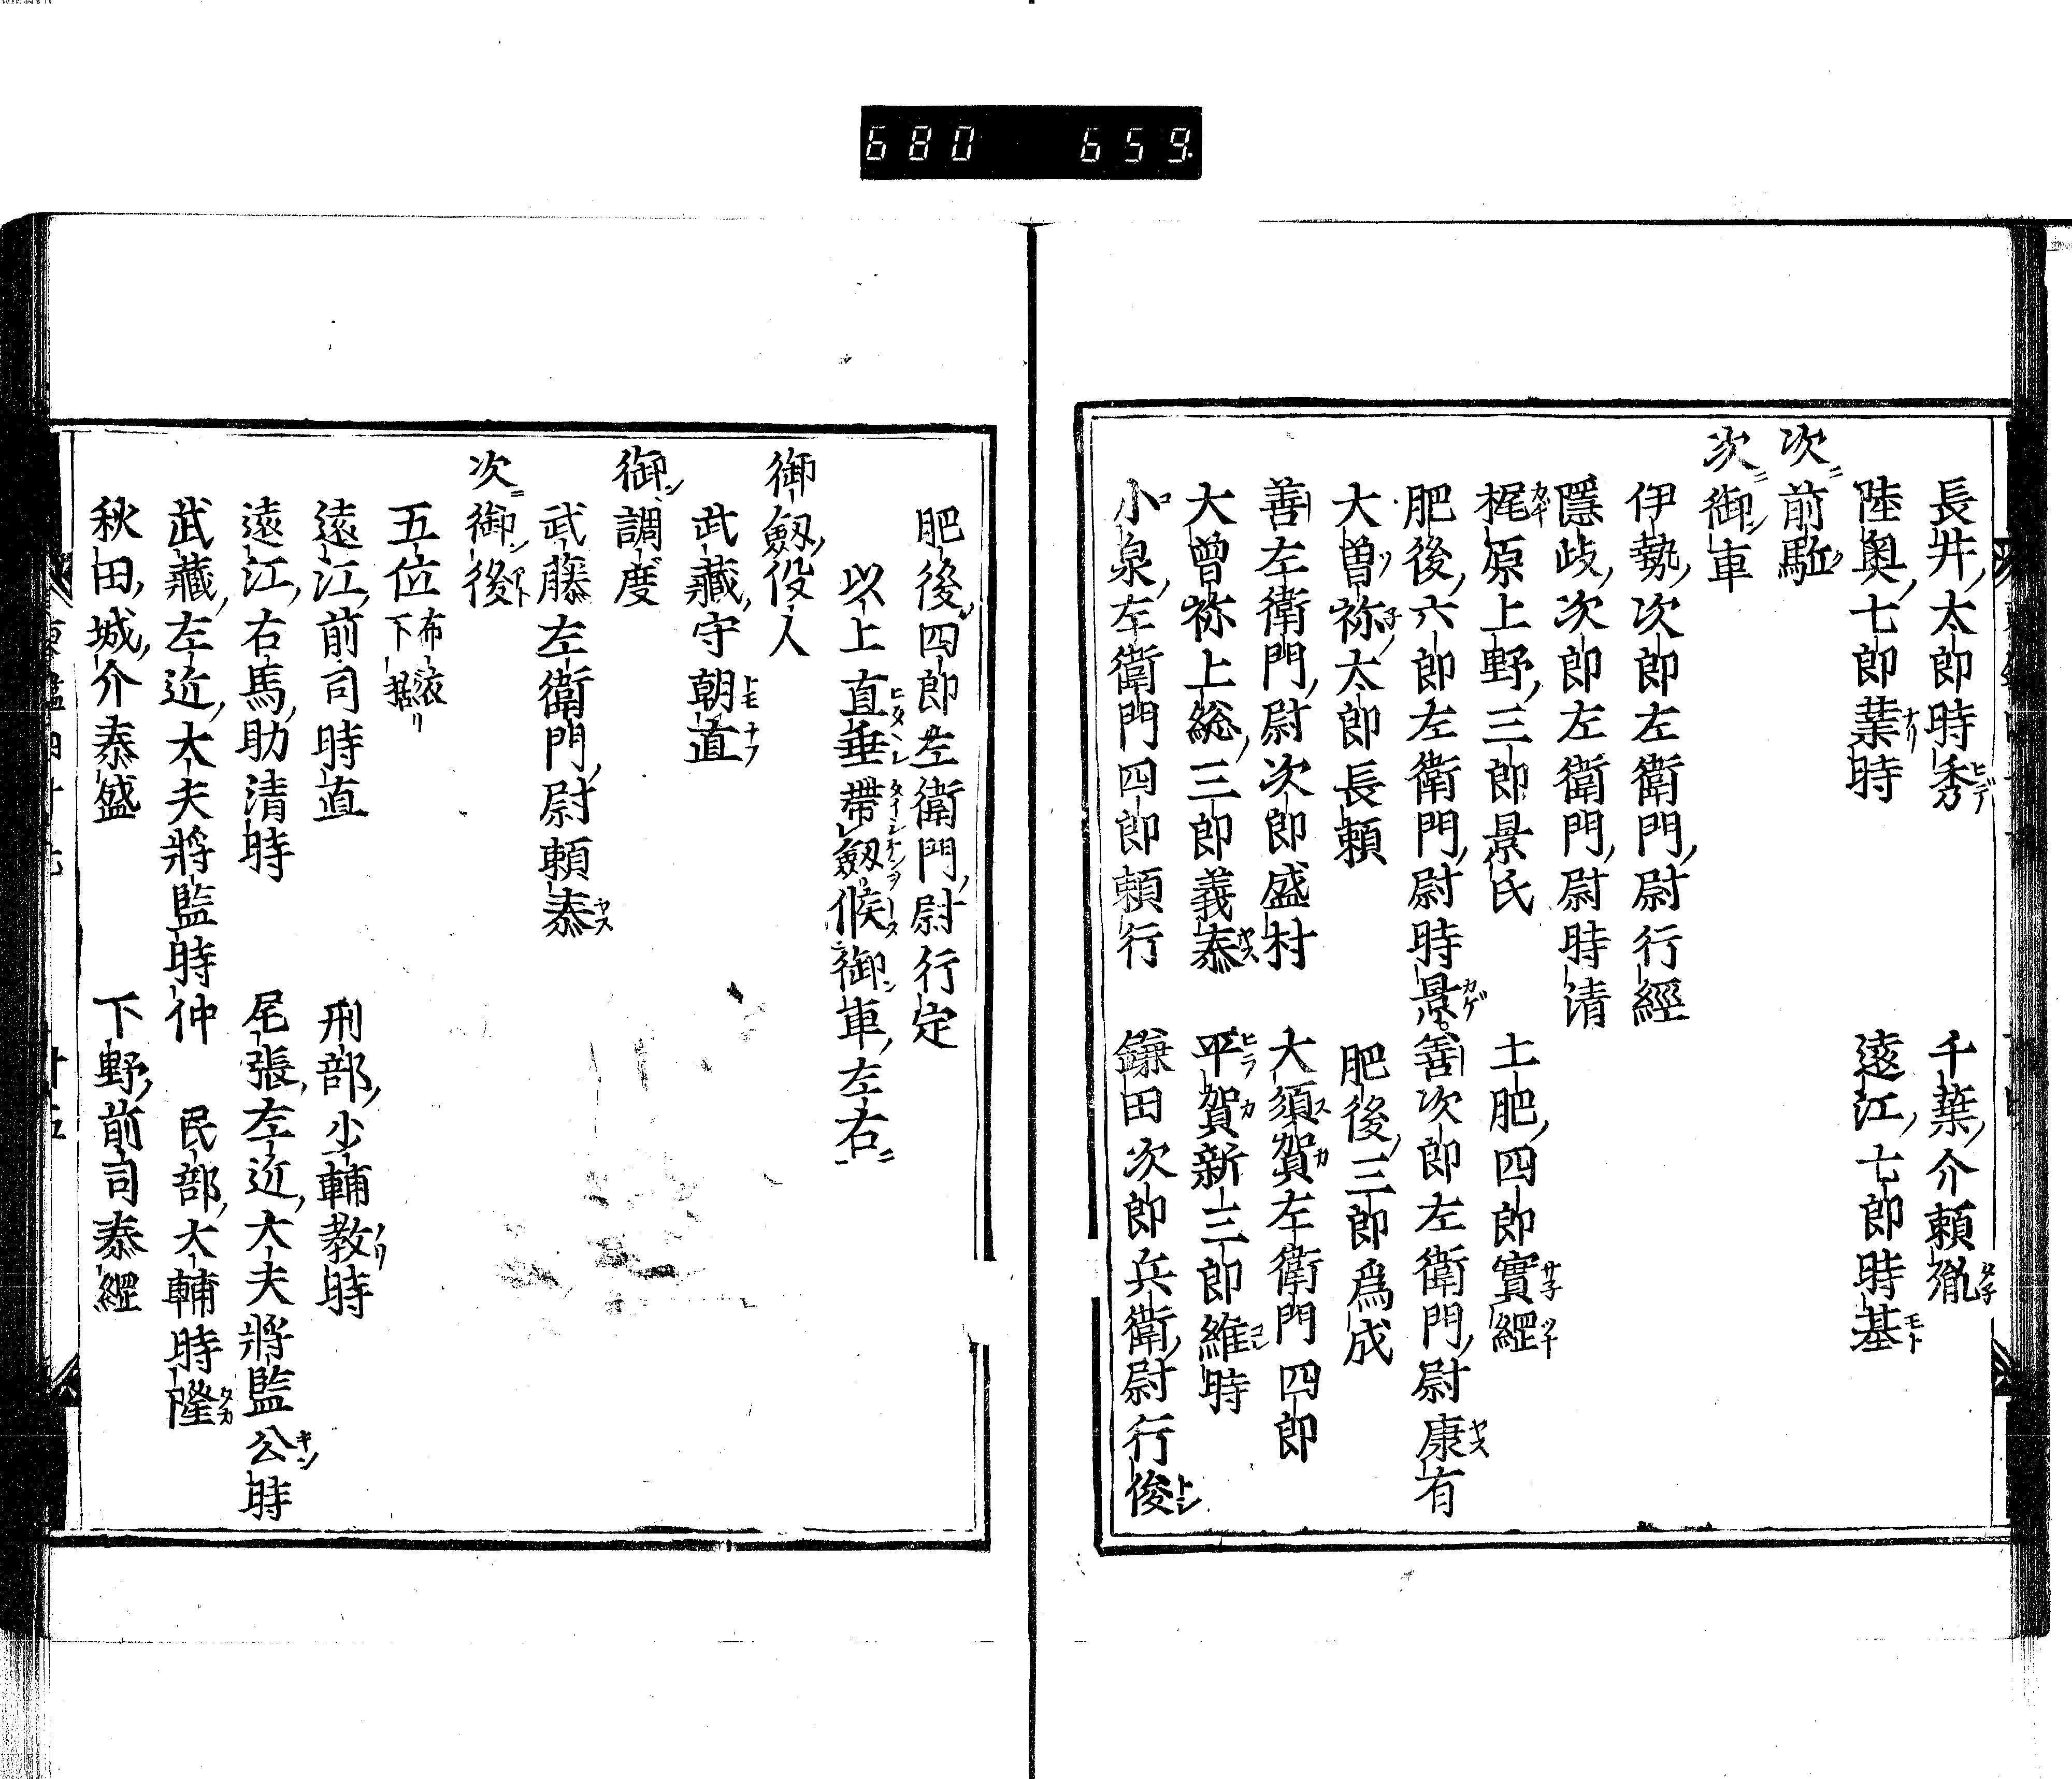 680 659
長井太郎時秀 千葉介頼胤
陸奥七郎業時 遠江七郎時基
次前駈
次御車
伊勢次郎左衛門尉行經
隱岐次郎左衛門尉時清
梶原上野三郎景氏 土肥四郎實經
肥後六郎左衛門尉時景 善次郎左衛門尉康有
大曽祢太郎長頼 肥後三郎爲成
善左衛門尉次郎盛村 大須賀左衛門四郎
大曽祢上総三郎義泰 平賀新三郎維時
小泉左衛門四郎頼行 鎌田次郎兵衛尉行俊
肥後四郎左衛門尉行定
以上直垂帶劔候御車左右
御劔役人
武藏守朝直
御調度
武藤左衛門尉頼泰
次御後
五位 布衣下括
遠江前司時直 刑部少輔教時
遠江右馬助清時 尾張左近大夫將監公時
武藏左近大夫將監時仲 民部大輔時隆
秋田城介泰盛 下野前司泰經